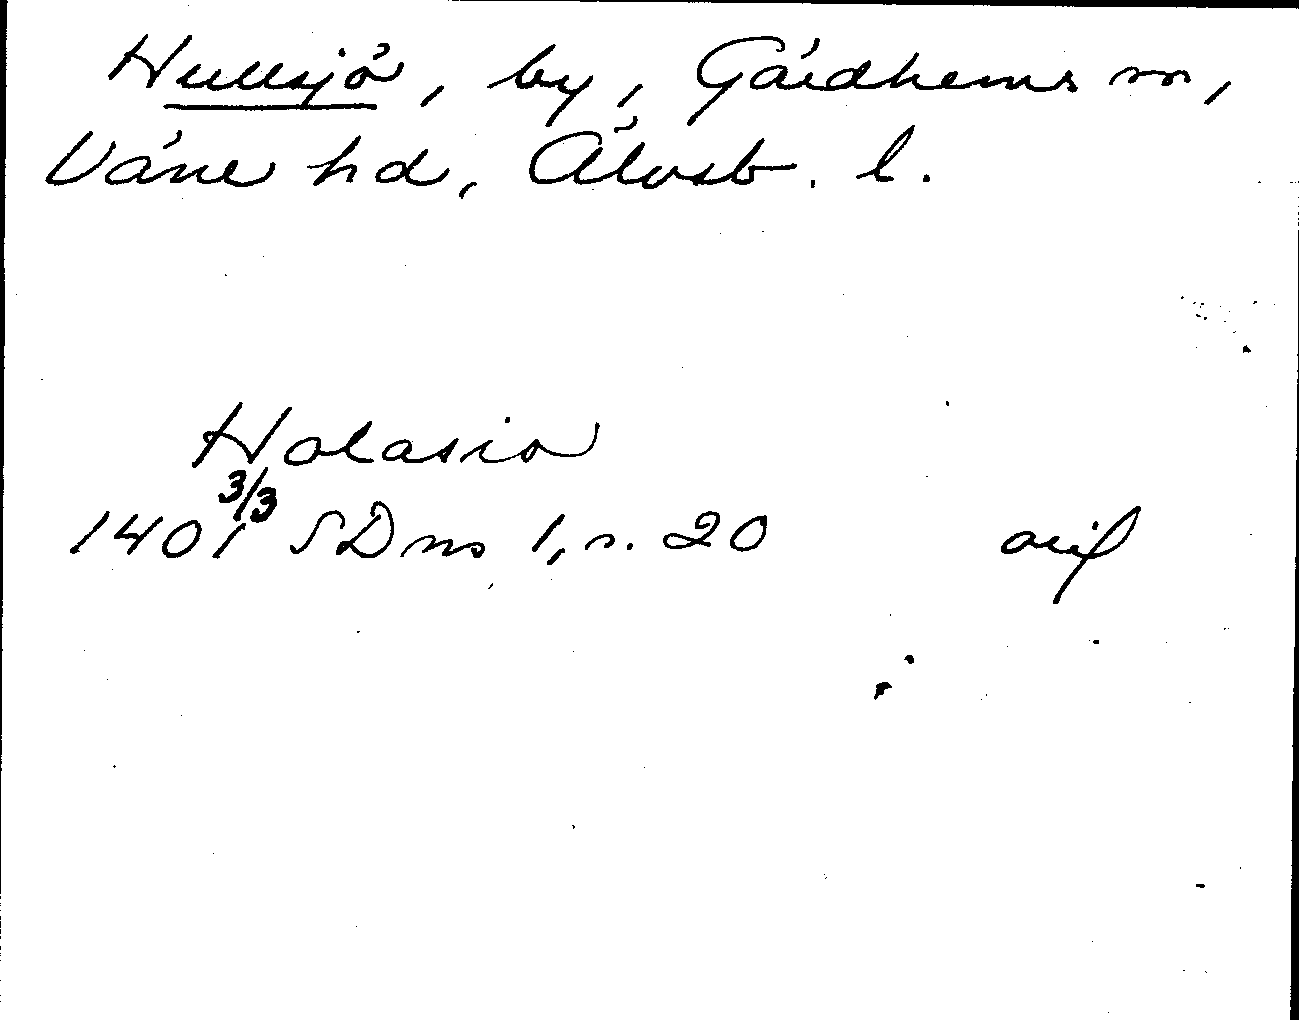 Hullsjö, by, Gärdhems sn,
Väne hd, Älvsb. l.
Holasio
1401 3/3 SDns 1, s. 20 orig